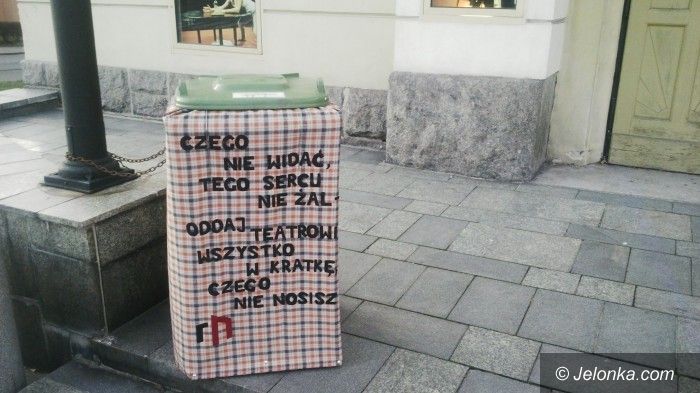 CZEGO
NIE WIDAĆ,
TEGO SERCU
NIE ŻAL-
ODDAJ TEATROWI
WSZYSTKO
W KRATKĘ,
CZEGO
NIE NOSISZ
© Jelonka.com